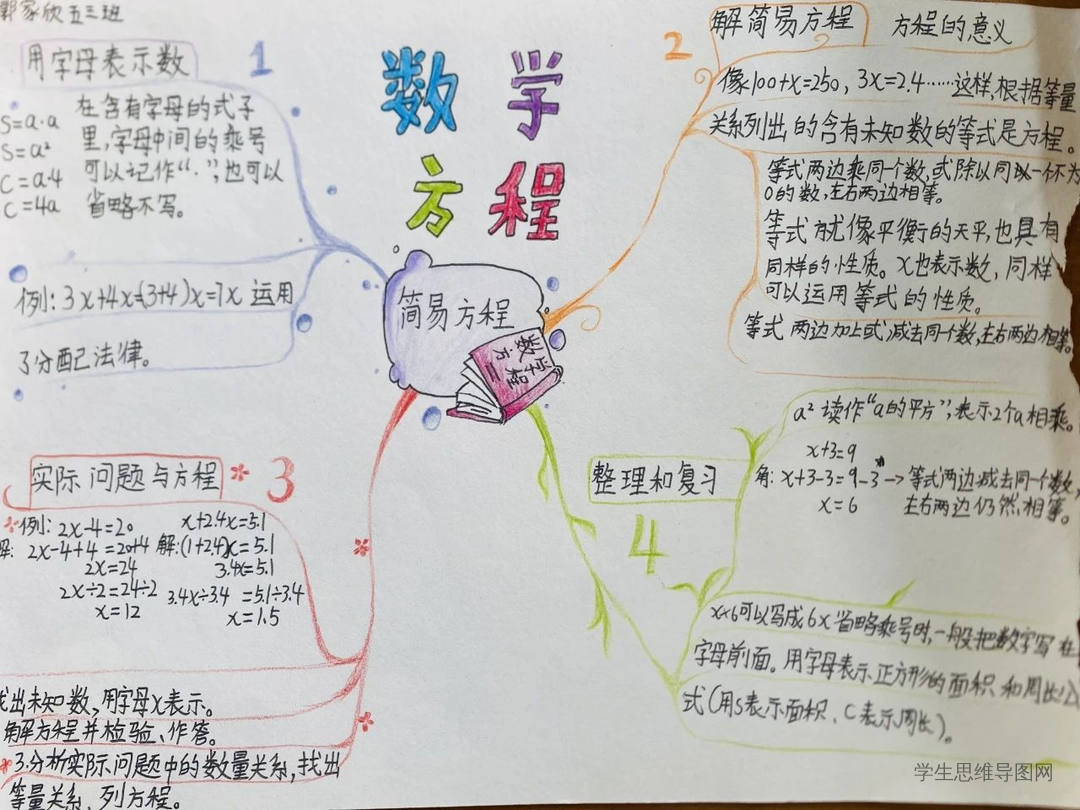 郭家欣五三班
数学
方程
简易方程
数学
方程
1
用字母表示数
S=a·a
S=a²
C=a·4
C=4a
在含有字母的式子
里,字母中间的乘号
可以记作“·”,也可以
省略不写。
例:3x+4x=(3+4)x=7x 运用
了分配法律。
2
解简易方程
方程的意义
像100+x=250,3x=2.4……这样,根据等量
关系列出的含有未知数的等式是方程。
等式两边乘同一个数,或除以同以一个不为
0的数,左右两边相等。
等式就像平衡的天平,也具有
同样的性质。x也表示数,同样
可以运用等式的性质。
等式两边加上或减去同个数,左右两边相等。
3
实际问题与方程
例:2x-4=20
解:2x-4+4=20+4
2x=24
2x÷2=24÷2
x=12
x+2.4x=5.1
解:(1+2.4)x=5.1
3.4x=5.1
3.4x÷3.4=5.1÷3.4
x=1.5
找出未知数,用字母x表示。
解方程并检验、作答。
3.分析实际问题中的数量关系,找出
等量关系、列方程。
4
整理和复习
a²读作“a的平方”,表示2个a相乘。
x+3=9
角:x+3-3=9-3→等式两边减去同个数,
x=6
左右两边仍然相等。
x×6可以写成6x省略乘号时,一般把数字写在
字母前面。用字母表示正方形的面积和周长公
式(用S表示面积、C表示周长)。
学生思维导图网